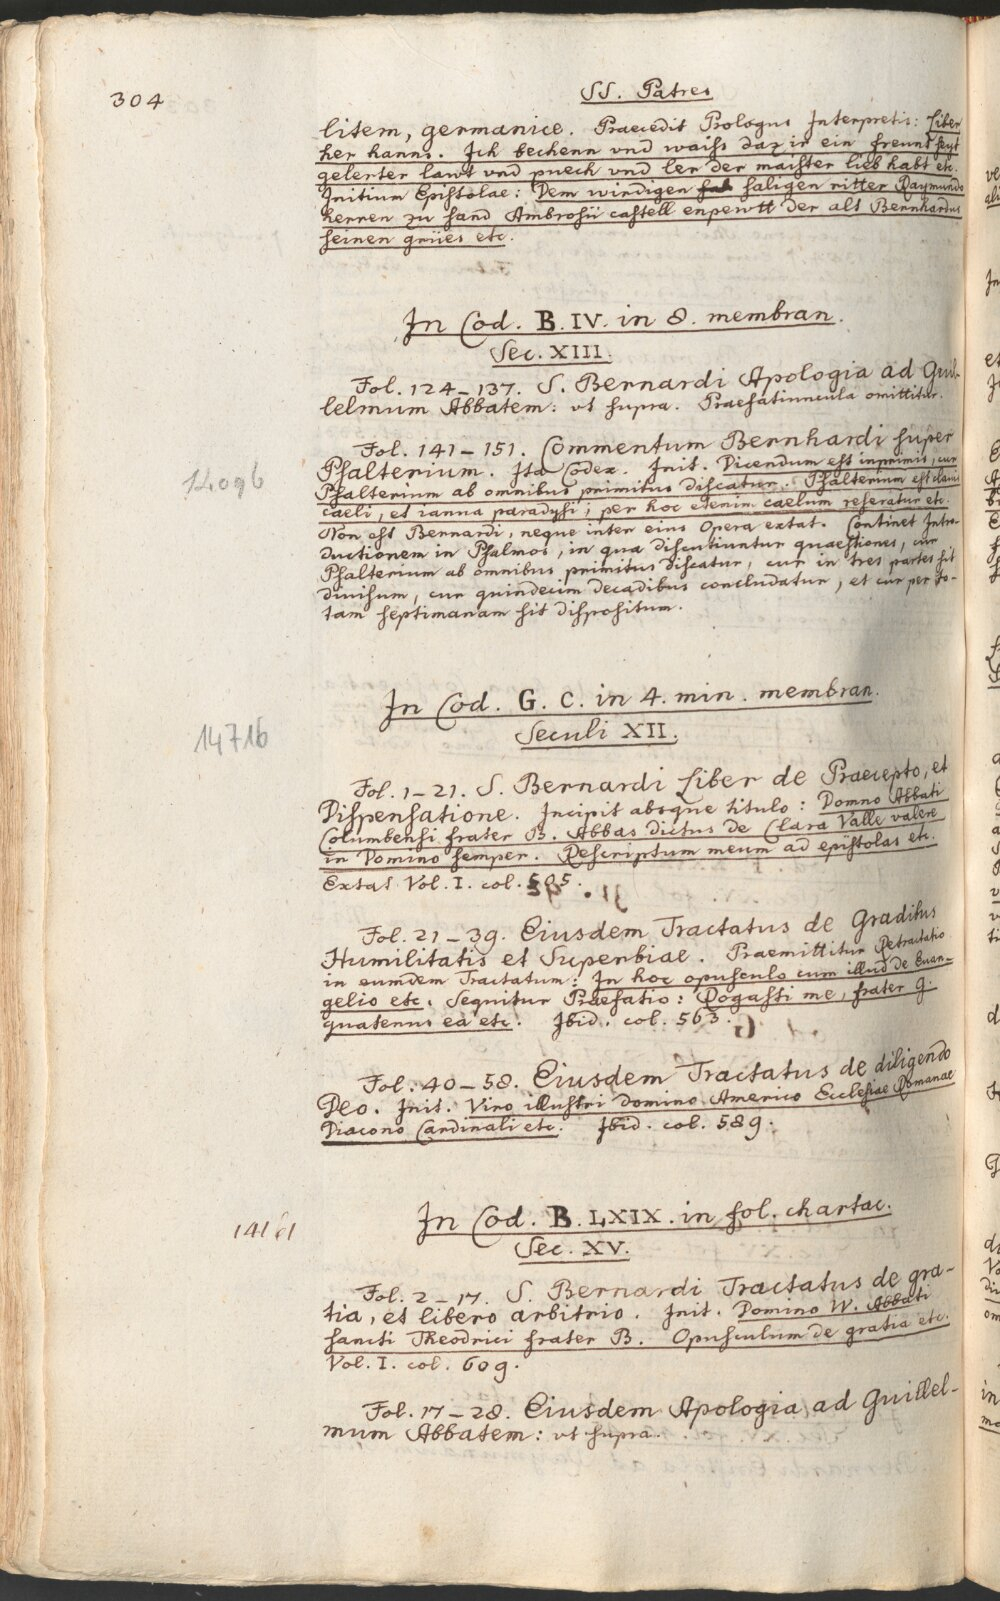 304
SS. Patres
litem, germanice. Praecedit Prologus Interpretis: Liber
her hanns. Ich bechenn vnd waiss daz ir ein freunt seyt
gelerter lawt vnd puech vnd ler der maister lieb habt etc.
Initium Epistolae: Dem wirdigen saligen ritter Raymundo
herren zu sand Ambrosii castell enpewtt der alt Bernhardus
seinen grües etc.
In Cod. B. IV. in 8. membran.
Sec. XIII.
Fol. 124-137. S. Bernardi Apologia ad Guil-
lelmum Abbatem: vt supra. Praefatiuncula omittitur.
14096
Fol. 141-151. Commentum Bernhardi super
Psalterium. Ita Codex. Init. Dicendum est inprimis, cur
Psalterium ab omnibus primitus discatur. Psalterium est clavis
caeli, et ianna paradysi; per hoc etenim caelum reseratur etc.
Non est Bernardi, neque inter eius Opera extat. Continet Intro-
ductionem in Psalmos, in qua discutiuntur quaestiones, cur
Psalterium ab omnibus primitus discatur, cur in tres partes sit
divisum, cur quindecim decadibus concludatur, et cur per to-
tam septimanam sit dispositum.
In Cod. G. C. in 4. min. membran.
Seculi XII.
14716
Fol. 1-21. S. Bernardi Liber de Praecepto, et
Dispensatione. Incipit absque titulo: Domno Abbati
Columbensi frater B. Abbas dictus de Clara Valle valere
in Domino semper. Rescriptum meum ad epistolas etc.
Extat Vol. I. col. 505.
Fol. 21-39. Eiusdem Tractatus de Gradibus
Humilitatis et Superbiae. Praemittitur Retractatio
in eumdem Tractatum: In hoc opusculo cum illud de Euan-
gelio etc. Sequitur Praefatio: Rogasti me, frater G.
quatenus ea etc. Ibid. col. 563.
Fol. 40-58. Eiusdem Tractatus de diligendo
Deo. Init. Viro illustri Domino Americo Ecclesiae Romanae
Diacono Cardinali etc. Ibid. col. 589.
In Cod. B. LXIX. in fol. chartac.
Sec. XV.
14161
Fol. 2-17. S. Bernardi Tractatus de gra-
tia, et libero arbitrio. Init. Domino W. Abbati
sancti Theodrici frater B. Opusculum de gratia etc.
Vol. I. col. 609.
Fol. 17-28. Eiusdem Apologia ad Guillel-
mum Abbatem: vt supra.